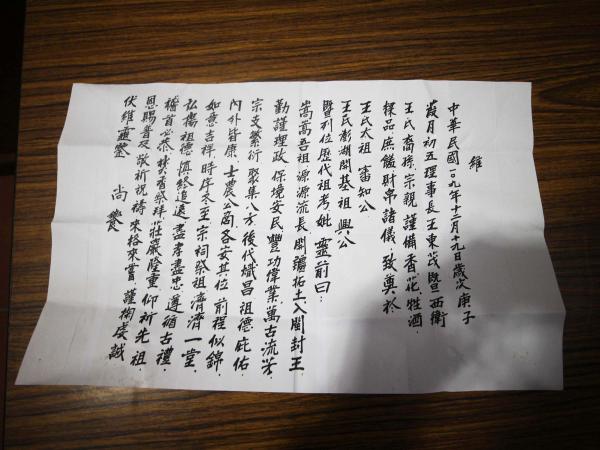 維
中華民國一0九年十二月十九日歲次庚子
葭月初五理事長王東茂暨西衛
王氏裔孫.宗親.謹備香花.牲酒.
粿品.庶饈財帛諸儀.致奠於
王氏太祖 審知公
王氏澎湖開基祖 興公
暨列位歷代祖考妣 靈前曰:
嵩嵩吾祖.源源流長.開疆拓土入閩封王
勤謹理政.保境安民.豐功偉業.萬古流芳.
宗支繁衍.聚集八方.後代熾昌.祖德庇佑
內外皆康.士農公商各安其位.前程似錦.
如意吉祥.時序冬至.宗祠祭祖.濟濟一堂
弘揚祖德.慎終追遠.盡孝盡忠.遵循古禮.
稽首必恭.焚香祭拜.莊嚴隆重.仰祈先祖.
恩賜普及.敬祈祝禱.來格來嘗.謹掬虔誠
伏維靈鑒 尚饗